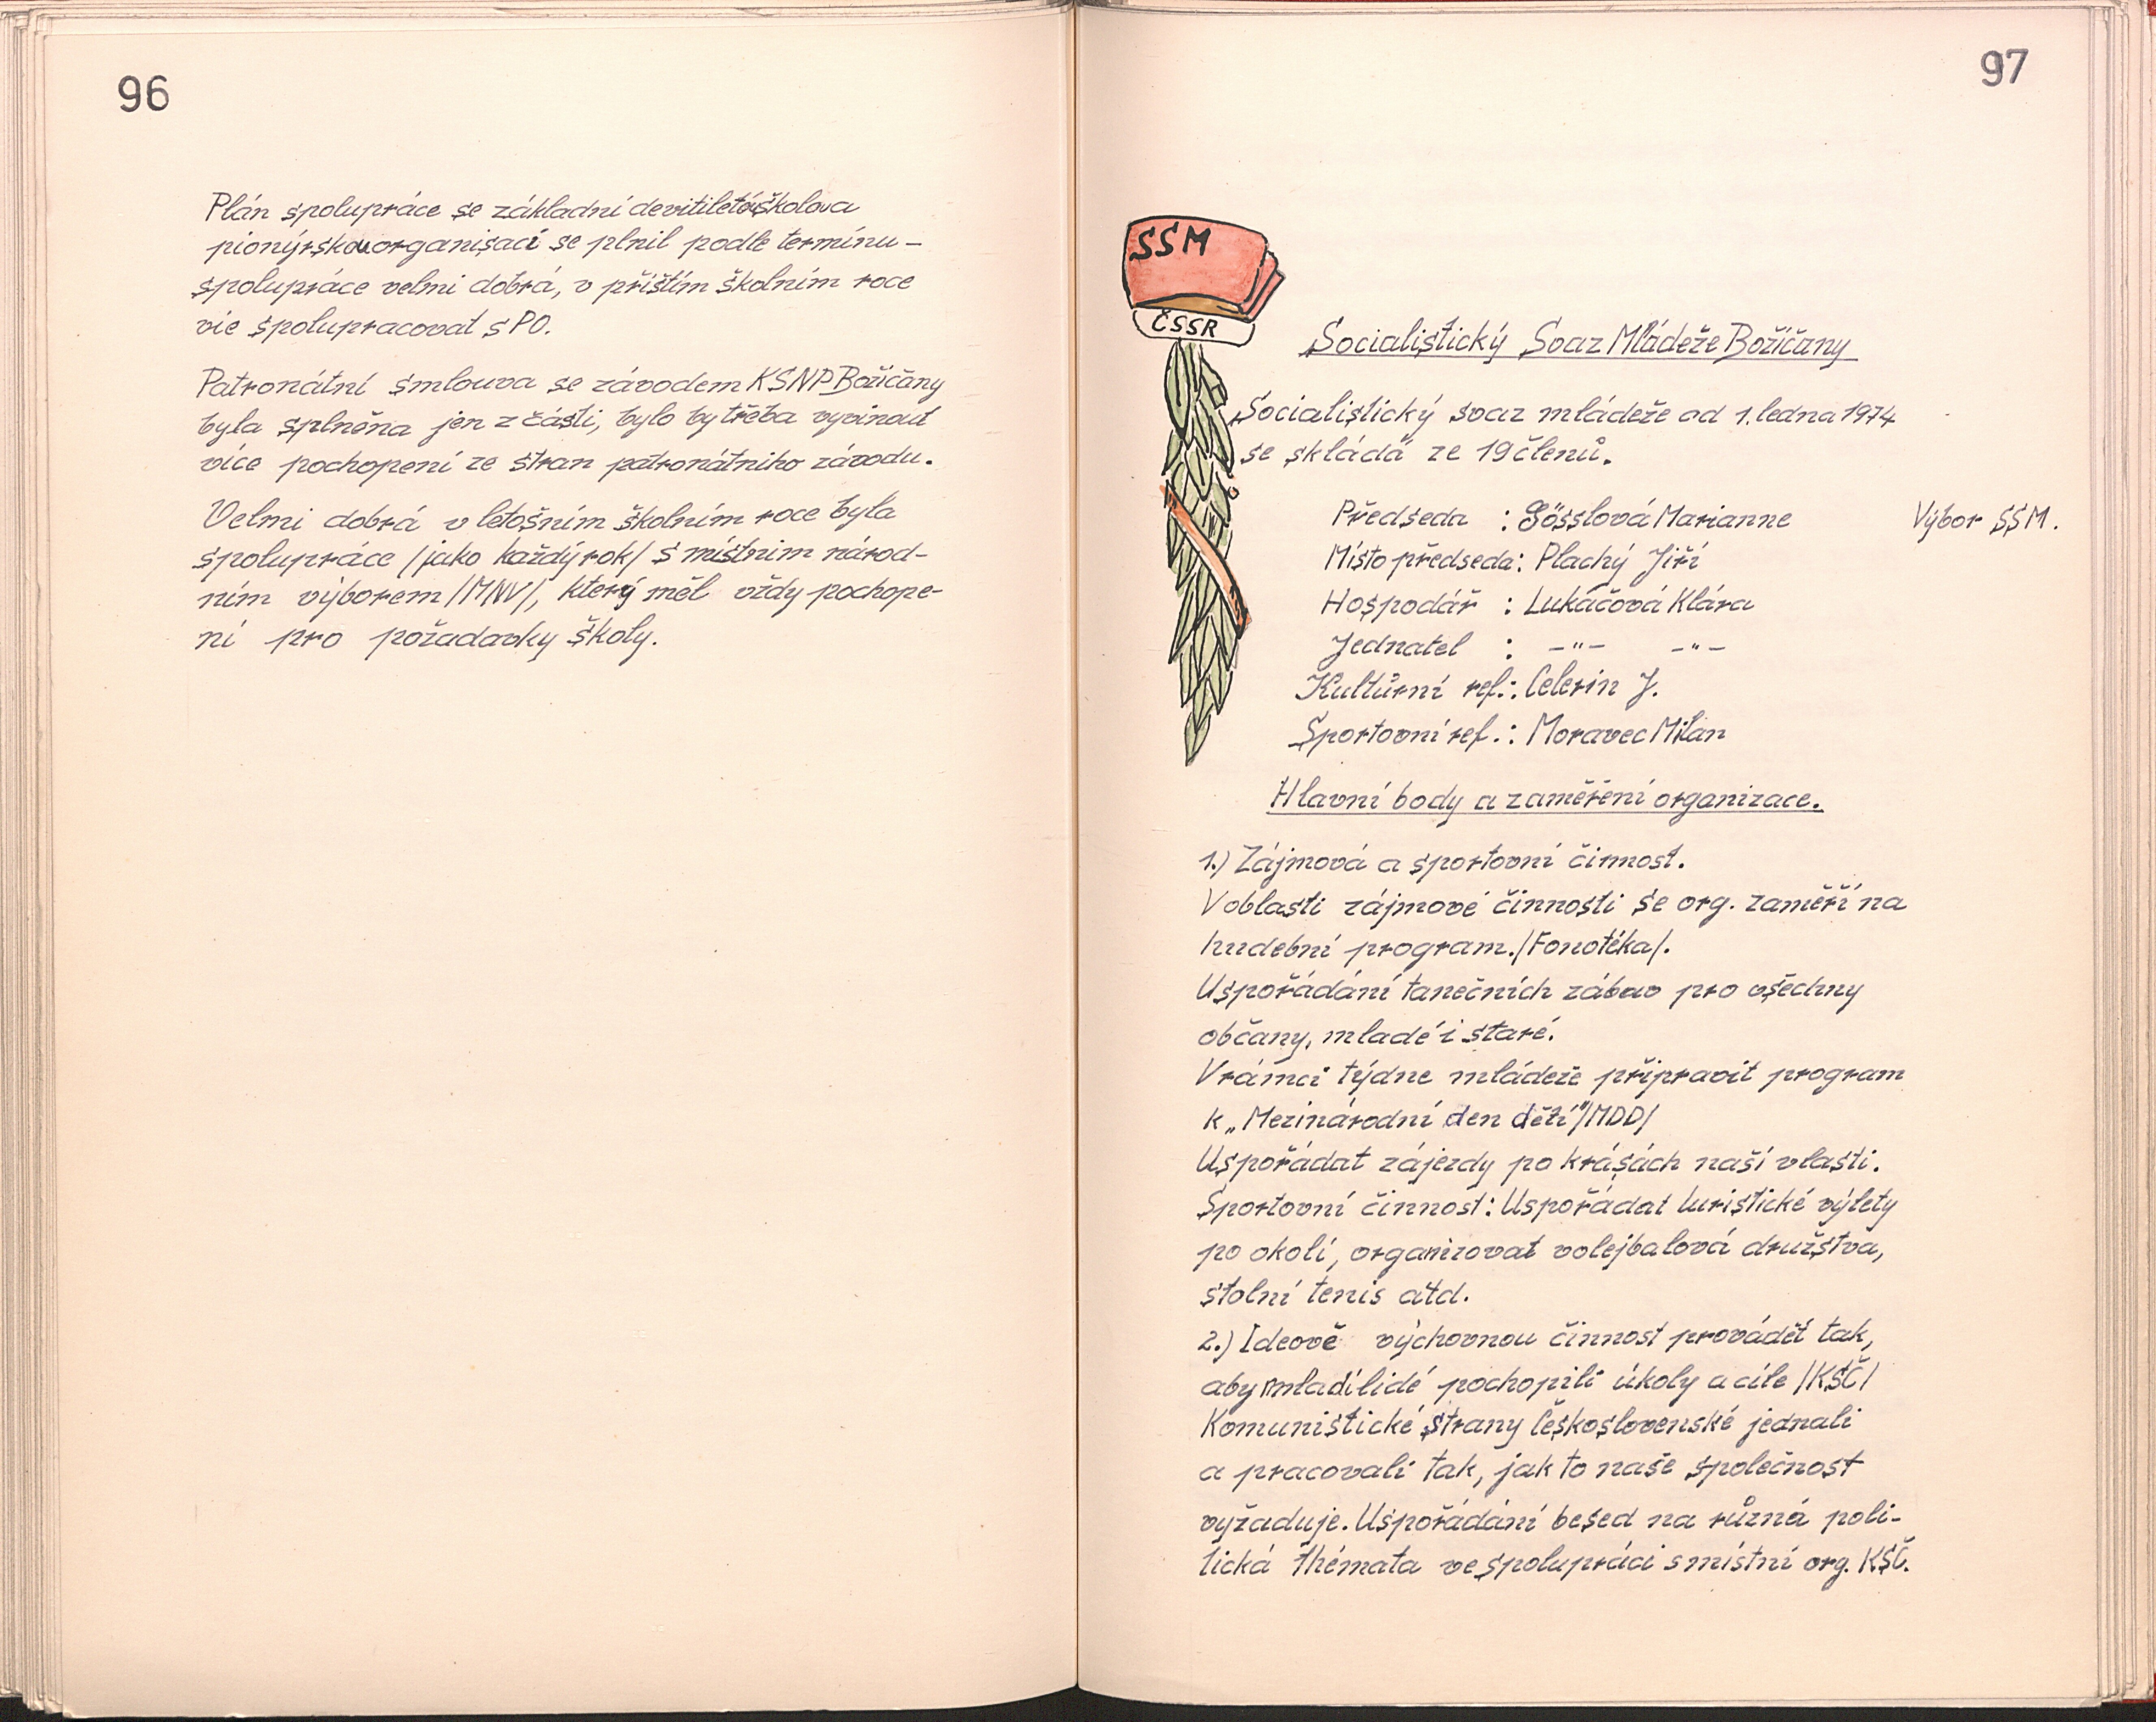 96
Plán spolupráce se základní devítiletou školou a
pionýrskou organisací se plnil podle termínu –
spolupráce velmi dobrá, v příštím školním roce
víc spolupracovat s PO.
Patronátní smlouva se závodem KSNP Božičany
byla splněna jen z části, bylo by třeba vyvinout
více pochopení ze stran patronátního závodu.
Velmi dobrá v letošním školním roce byla
spolupráce /jako každý rok/ s místním národ-
ním výborem /MNV/, který měl vždy pochope-
ní pro požadavky školy.
97
SSM
ČSSR
Socialistický Svaz Mládeže Božíčany
Socialistický svaz mládeže od 1. ledna 1974
se skládá ze 19 členů.
Předseda : Gösslová Marianne
Výbor SSM.
Místo předseda: Plachý Jiří
Hospodář : Lukáčová Klára
Jednatel : –"– –"–
Kultůrní ref.: Celerin J.
Sportovní ref.: Moravec Milan
Hlavní body a zaměření organizace.
1.) Zájmová a sportovní činnost.
V oblasti zájmové činnosti se org. zaměří na
hudební program. /Fonotéka/.
Uspořádání tanečních zábav pro všechny
občany, mladé i staré.
V rámci týdne mládeže připravit program
k „Mezinárodní den dětí" /MDD/
Uspořádat zájezdy po krásách naší vlasti.
Sportovní činnost: Uspořádat turistické výlety
po okolí, organizovat volejbalová družstva,
stolní tenis atd.
2.) Ideově výchovnou činnost provádět tak,
aby mladí lidé pochopili úkoly a cíle /KSČ/
Komunistické strany Československé jednali
a pracovali tak, jak to naše společnost
vyžaduje. Uspořádání besed na různá poli-
tická thémata ve spolupráci s místní org. KSČ.